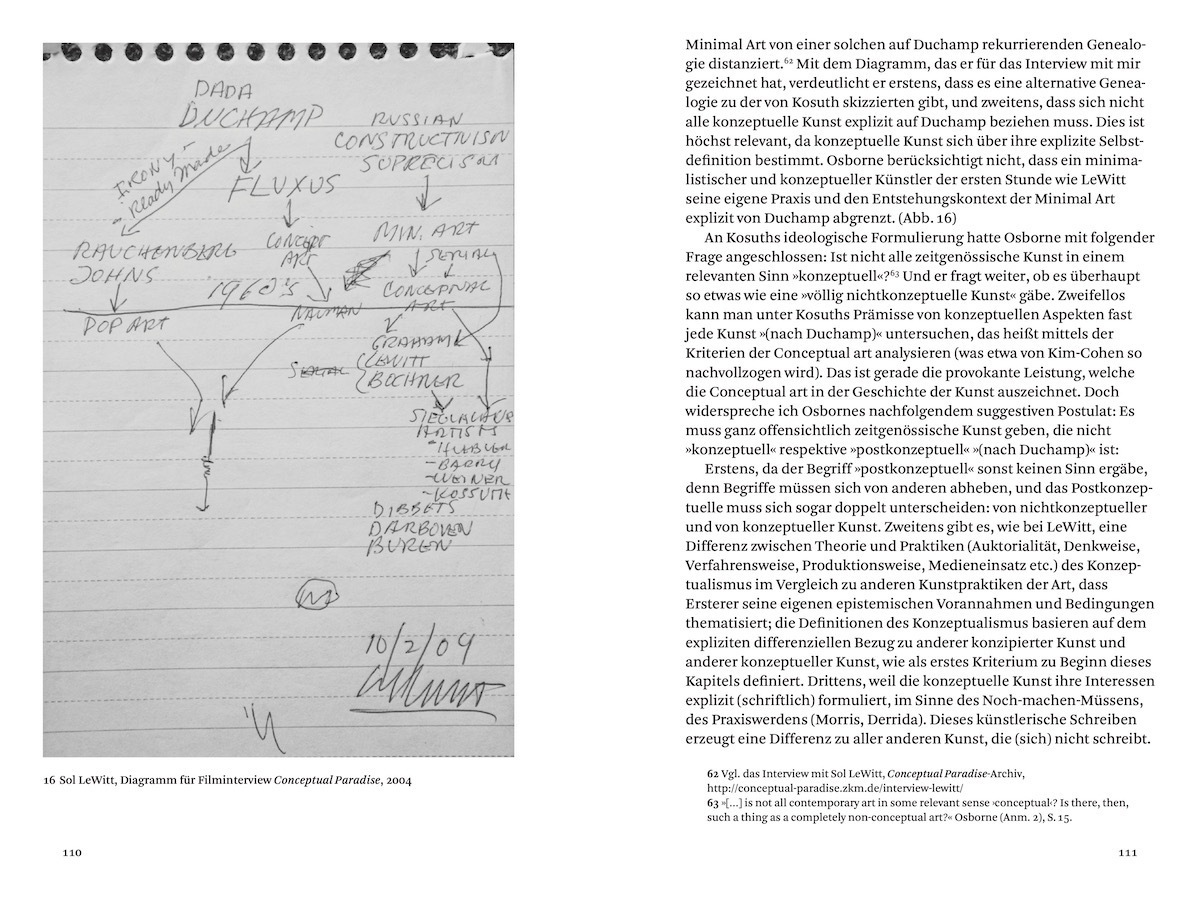 DADA
DUCHAMP
RUSSIAN
CONSTRUCTIVISM
SUPRECISM
IRONY –
– Ready Made
FLUXUS
RAUCHENBERG
JOHNS
CONCEPT
ART
MIN. ART
SERIAL
CONCEPTUAL
ART
1960'S
POP ART
NAUMAN
GRAHAM
SERIAL
LEWITT
BOCHNER
SIEGLAUB
ARTISTS
- HUEBLER
- BARRY
- WEINER
- KOSSUTH
DIBBETS
DARBOVEN
BUREN
10/2/04
16 Sol LeWitt, Diagramm für Filminterview Conceptual Paradise, 2004
110
Minimal Art von einer solchen auf Duchamp rekurrierenden Genealo-
gie distanziert.62 Mit dem Diagramm, das er für das Interview mit mir
gezeichnet hat, verdeutlicht er erstens, dass es eine alternative Genea-
logie zu der von Kosuth skizzierten gibt, und zweitens, dass sich nicht
alle konzeptuelle Kunst explizit auf Duchamp beziehen muss. Dies ist
höchst relevant, da konzeptuelle Kunst sich über ihre explizite Selbst-
definition bestimmt. Osborne berücksichtigt nicht, dass ein minima-
listischer und konzeptueller Künstler der ersten Stunde wie LeWitt
seine eigene Praxis und den Entstehungskontext der Minimal Art
explizit von Duchamp abgrenzt. (Abb. 16)
An Kosuths ideologische Formulierung hatte Osborne mit folgender
Frage angeschlossen: Ist nicht alle zeitgenössische Kunst in einem
relevanten Sinn »konzeptuell«?63 Und er fragt weiter, ob es überhaupt
so etwas wie eine »völlig nichtkonzeptuelle Kunst« gäbe. Zweifellos
kann man unter Kosuths Prämisse von konzeptuellen Aspekten fast
jede Kunst »(nach Duchamp)« untersuchen, das heißt mittels der
Kriterien der Conceptual art analysieren (was etwa von Kim-Cohen so
nachvollzogen wird). Das ist gerade die provokante Leistung, welche
die Conceptual art in der Geschichte der Kunst auszeichnet. Doch
widerspreche ich Osbornes nachfolgendem suggestiven Postulat: Es
muss ganz offensichtlich zeitgenössische Kunst geben, die nicht
»konzeptuell« respektive »postkonzeptuell« »(nach Duchamp)« ist:
Erstens, da der Begriff »postkonzeptuell« sonst keinen Sinn ergäbe,
denn Begriffe müssen sich von anderen abheben, und das Postkonzep-
tuelle muss sich sogar doppelt unterscheiden: von nichtkonzeptueller
und von konzeptueller Kunst. Zweitens gibt es, wie bei LeWitt, eine
Differenz zwischen Theorie und Praktiken (Auktorialität, Denkweise,
Verfahrensweise, Produktionsweise, Medieneinsatz etc.) des Konzep-
tualismus im Vergleich zu anderen Kunstpraktiken der Art, dass
Ersterer seine eigenen epistemischen Vorannahmen und Bedingungen
thematisiert; die Definitionen des Konzeptualismus basieren auf dem
expliziten differenziellen Bezug zu anderer konzipierter Kunst und
anderer konzeptueller Kunst, wie als erstes Kriterium zu Beginn dieses
Kapitels definiert. Drittens, weil die konzeptuelle Kunst ihre Interessen
explizit (schriftlich) formuliert, im Sinne des Noch-machen-Müssens,
des Praxiswerdens (Morris, Derrida). Dieses künstlerische Schreiben
erzeugt eine Differenz zu aller anderen Kunst, die (sich) nicht schreibt.
62 Vgl. das Interview mit Sol LeWitt, Conceptual Paradise-Archiv,
http://conceptual-paradise.zkm.de/interview-lewitt/
63 »[…] is not all contemporary art in some relevant sense ›conceptual‹? Is there, then,
such a thing as a completely non-conceptual art?« Osborne (Anm. 2), S. 15.
111